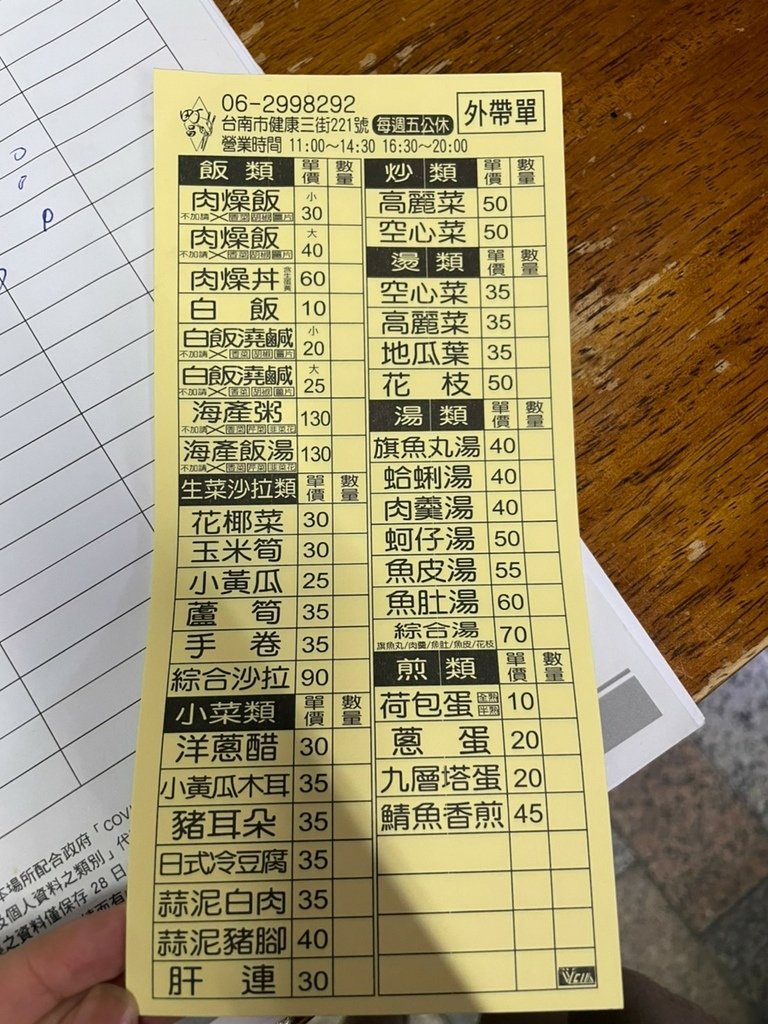 06-2998292
台南市健康三街221號 每週五公休
營業時間 11:00～14:30 16:30～20:00
外帶單
飯類 單價 數量
肉燥飯 小 30
不加請╳ 香菜 胡椒 薑片
肉燥飯 大 40
不加請╳ 香菜 胡椒 薑片
肉燥丼 含生蛋黃 60
白飯 10
白飯澆鹹 小 20
不加請╳ 香菜 胡椒 薑片
白飯澆鹹 大 25
不加請╳ 香菜 胡椒 薑片
海產粥 130
不加請╳ 香菜 芹菜 韭菜花
海產飯湯 130
不加請╳ 香菜 芹菜 韭菜花
生菜沙拉類 單價 數量
花椰菜 30
玉米筍 30
小黃瓜 25
蘆筍 35
手卷 35
綜合沙拉 90
小菜類 單價 數量
洋蔥醋 30
小黃瓜木耳 35
豬耳朵 35
日式冷豆腐 35
蒜泥白肉 35
蒜泥豬腳 40
肝連 30
炒類 單價 數量
高麗菜 50
空心菜 50
燙類 單價 數量
空心菜 35
高麗菜 35
地瓜葉 35
花枝 50
湯類 單價 數量
旗魚丸湯 40
蛤蜊湯 40
肉羹湯 40
蚵仔湯 50
魚皮湯 55
魚肚湯 60
綜合湯 70
旗魚丸/肉羹/魚肚/魚皮/花枝
煎類 單價 數量
荷包蛋 全熟 半熟 10
蔥蛋 20
九層塔蛋 20
鯖魚香煎 45
本場所配合政府「COVI
及個人資料之類別」代
之資料僅保存 28 日